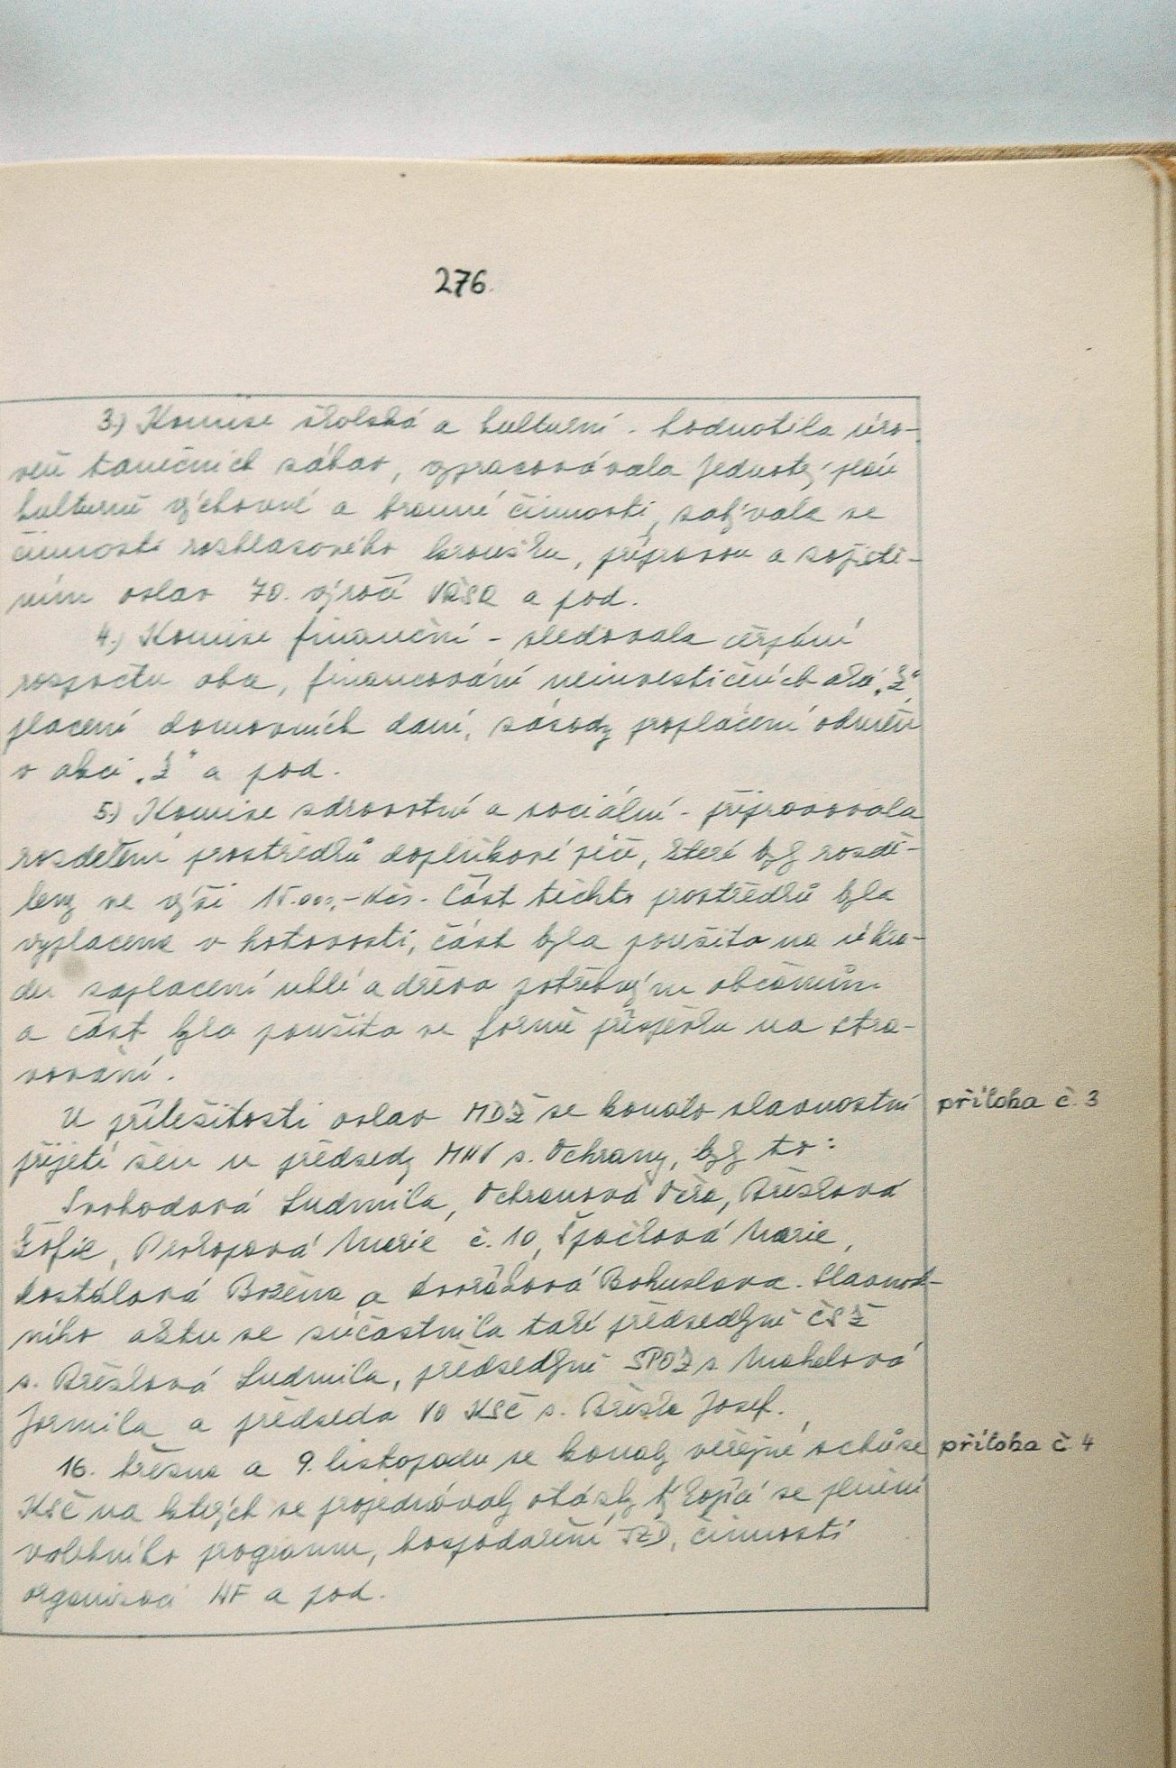 276.
3.) Komise školská a kulturní - hodnotila úro-
veň tanečních zábav, vypracovávala jednotný plán
kulturně výchovné a branné činnosti, zabývala se
činností rozhlasového kroužku, přípravou a zajiště-
ním oslav 70. výročí VŘSR a pod.
4.) Komise finanční - sledovala čerpání
rozpočtu obce, financování neinvestičních akcí „Z“
placení domovních daní, zásady proplácení odměn
v akci „Z“ a pod.
5.) Komise zdravotní a sociální - připravovala
rozdělení prostředků doplňkové péče, které byly rozdě-
leny ve výši 15.000,- Kčs. Část těchto prostředků byla
vyplacena v hotovosti, část byla použita na úhra-
du zaplacení uhlí a dřeva potřebným občanům
a část byla použita ve formě příspěvku na stra-
vování.
U příležitosti oslav MDŽ se konalo slavnostní
příloha č. 3
přijetí žen u předsedy MNV s. Ochrany, byly to:
Svobodová Ludmila, Ochranová Věra, Břešková
Žofie, Prokopová Marie č. 10, Špačková Marie,
Kostálová Božena a Dvořáková Bohuslava. Slavnost-
ního aktu se zúčastnila také předsedkyně ČSŽ
s. Břešková Ludmila, předsedkyně SPOZ s. Machalová
Jarmila a předseda VO KSČ s. Břeška Josef.
16. března a 9. listopadu se konaly veřejné schůze
příloha č 4
KSČ na kterých se projednávaly otázky týkající se plnění
volebního programu, hospodaření JZD, činnosti
organizací NF a pod.